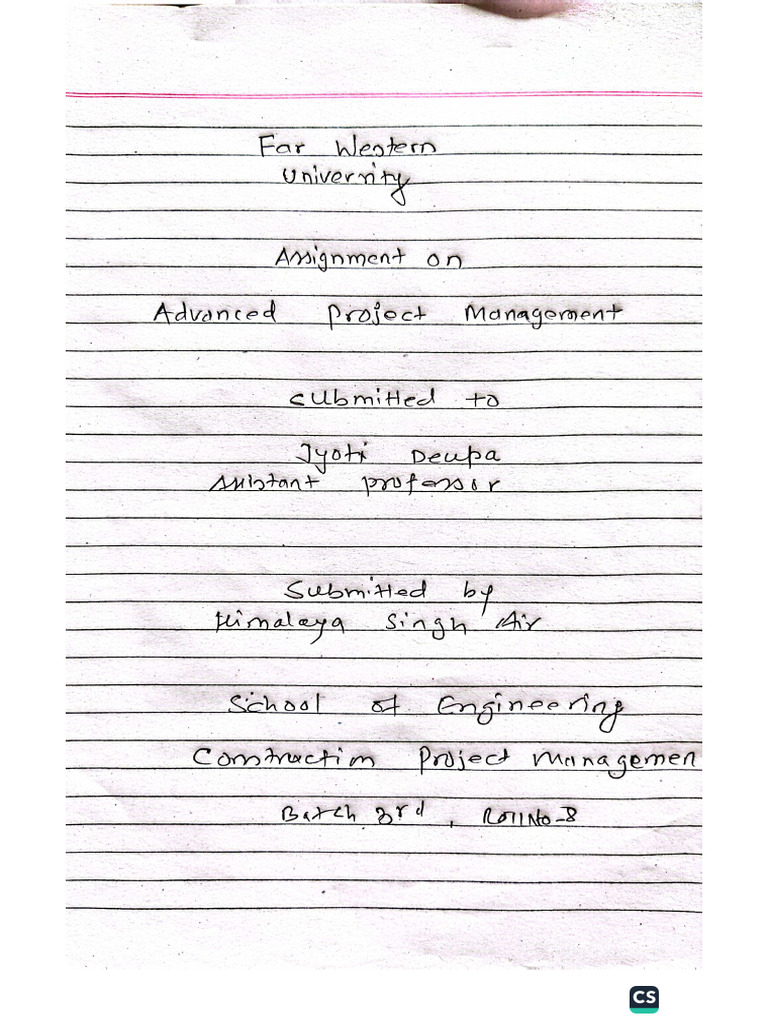 Far Western
University
Assignment on
Advanced Project Management
Submitted to
Jyoti Deupa
Assistant professor
Submitted by
Himalaya Singh Air
School of Engineering
Construction Project Managemen
Batch 3rd, Roll No-8
CS